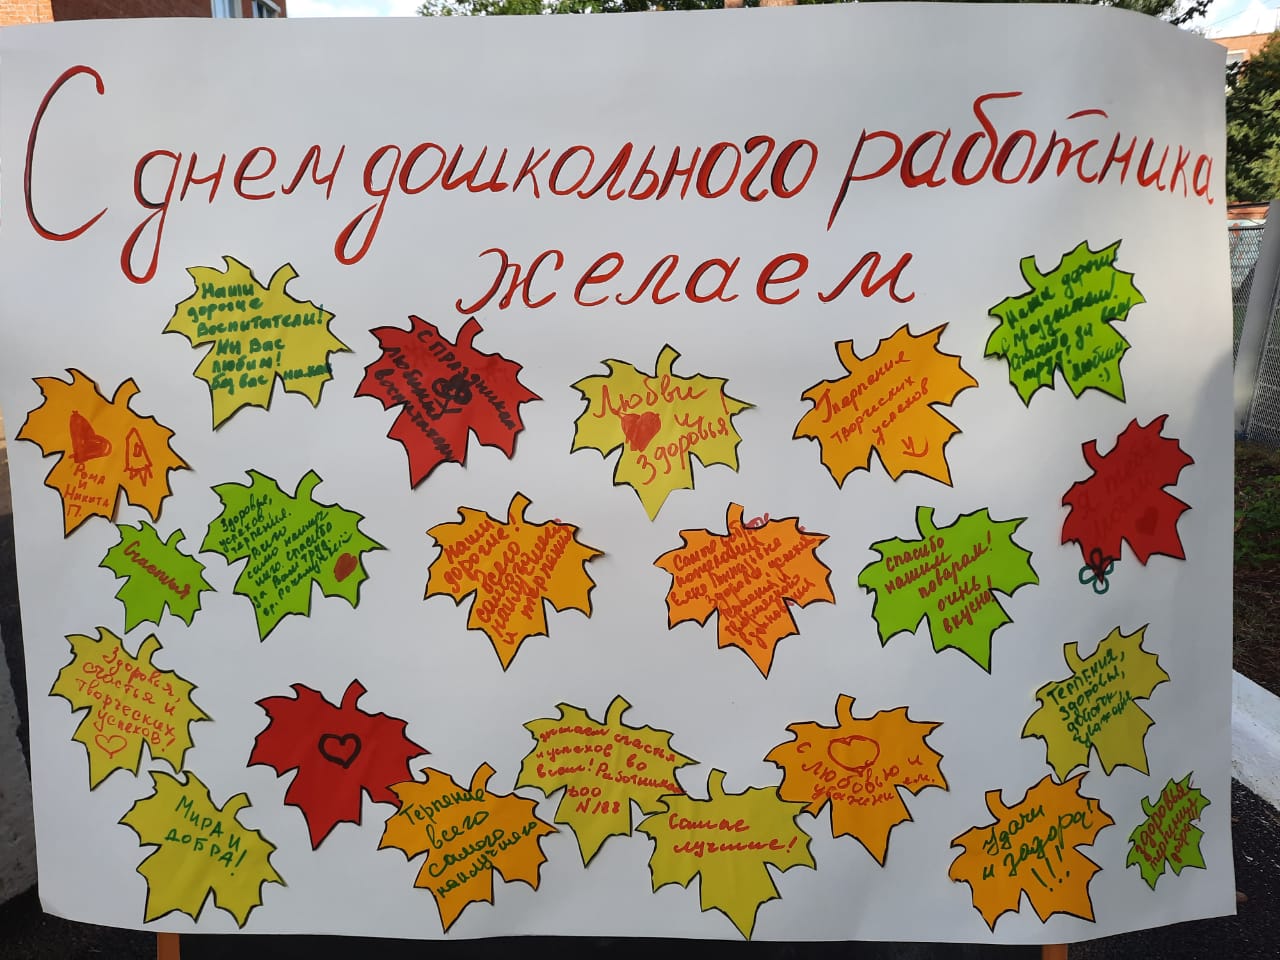 С днем дошкольного работника
желаем
Наши
дорогие
Воспитатели!
Мы Вас
любим!
без вас никак
С праздником
любимые
воспитатели
Любви
и
Здоровья!
Терпения
творческих
успехов
Наши дорогие
с праздником!
Спасибо за ваш
труд!
любим
:)
Рома
и
Никита
П.
Счастья
Здоровья,
успехов
терпения.
само наилуч
него. спасибо
за Ваш труд.
Наши
дорогие!
Всего
самого
наилучшего
и терпения
здоровья
терпения и
спасибо
нашим
поварам!
очень
вкусно!
Здоровья,
счастья и
творческих
успехов!
желаем счастья
и успехов во
всем! Работникам
ДОО
N 188
С
любовью и
уважени
ем.
Терпения,
здоровья,
Мира и
добра!
Терпение
всего
самого
наилучшего
Самые
лучшие!
Удачи
и задора!
!!!
здоровья
терпения
добра